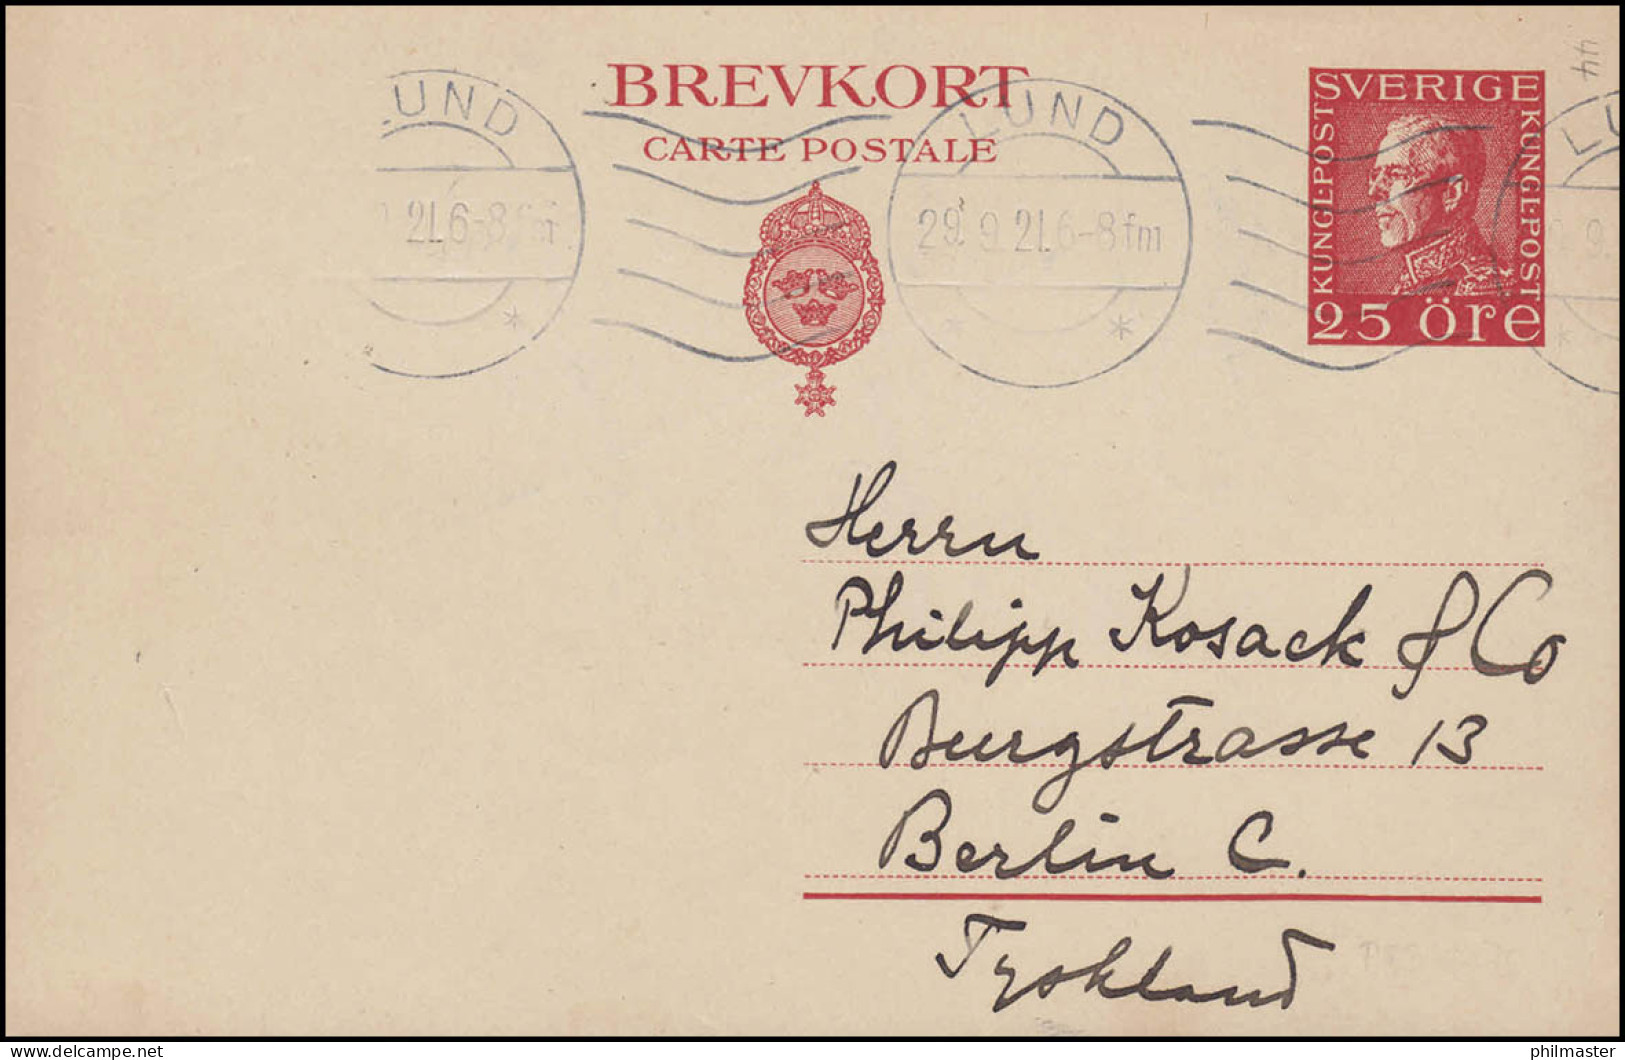 BREVKORT
CARTE POSTALE
SVERIGE
KUNGL.POST
KUNGL.POST
25 öre
LUND
21.6-8 fm
LUND
29.9.21.6-8 fm
LU
9.
44
Herrn
Philipp Kosack & Co
Burgstrasse 13
Berlin C.
Tyskland
philmaster